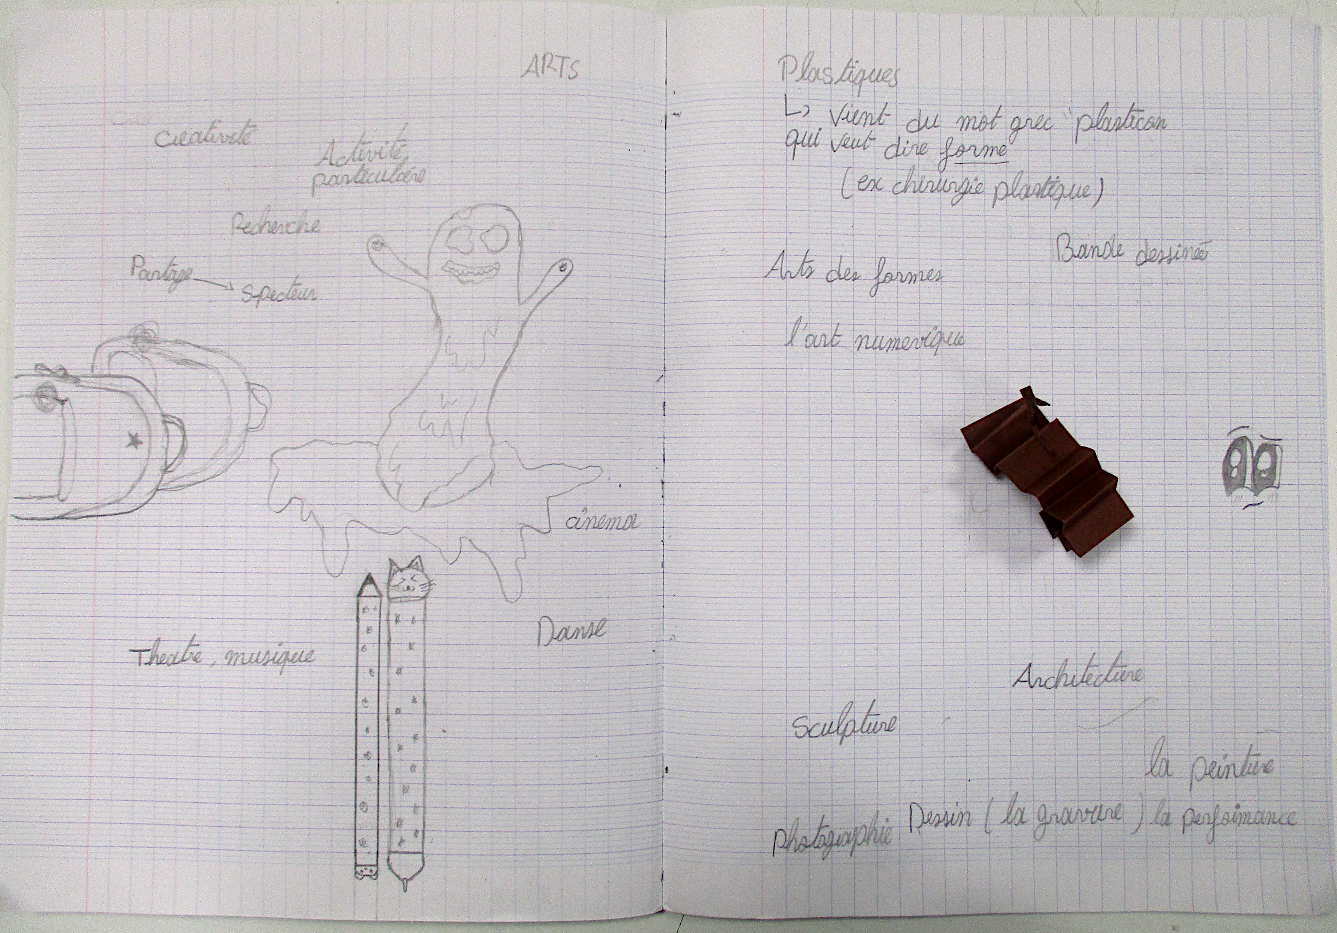 ARTS
Créativité
Activité
particulière
Recherche
Partage
Specteur
cinema
Theatre, musique
Danse
Plastiques
↳ vient du mot grec "plasticon
qui veut dire forme
(ex chirurgie plastique)
Bande dessineé
Arts des formes
l'art numerique
Architecture
Sculpture
la peinture
Dessin (la gravure) la performance
photographie